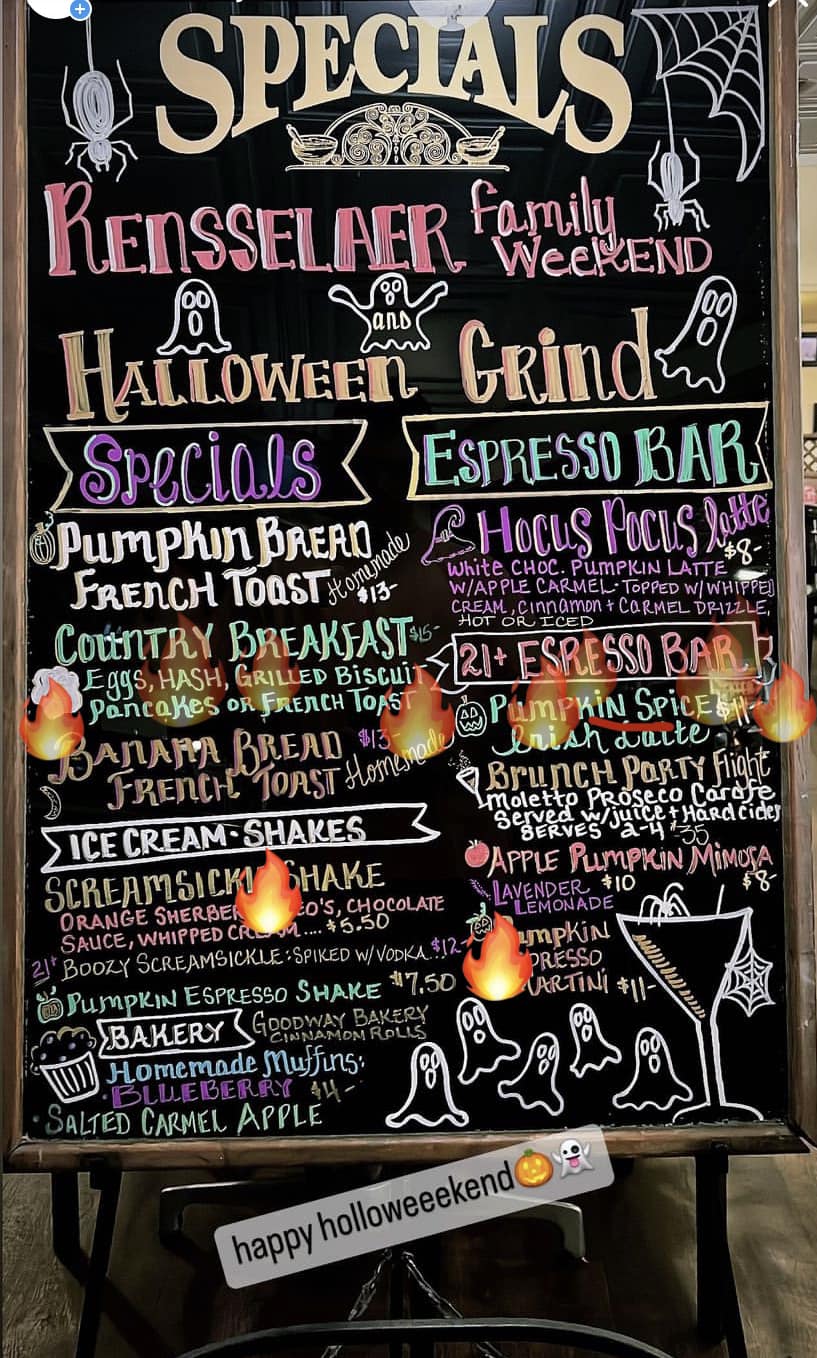 SPECIALS
RENSSELAER family
WEEKEND
and
HALLOWEEN Grind
Specials
PUMPKIN BREAD
FRENCH TOAST Homemade
$13-
COUNTRY BREAKFAST $15-
Eggs, HASH, GRILLED Biscuit
Pancakes OR FRENCH TOAST
BANANA BREAD $13-
FRENCH TOAST Homemade
ICE CREAM · SHAKES
SCREAMSICKLE SHAKE
ORANGE SHERBER CHOCOLATE
SAUCE, WHIPPED CREAM.... $5.50
21+ BOOZY SCREAMSICKLE: SPIKED W/VODKA. $12-
PUMPKIN ESPRESSO SHAKE $7.50
BAKERY GOODWAY BAKERY
CINNAMON ROLLS
Homemade Muffins:
· BLUEBERRY $4-
· SALTED CARMEL APPLE
ESPRESSO BAR
HOCUS POCUS latte
$8-
White CHOC. PUMPKIN LATTE
W/APPLE CARMEL · TOPPED W/WHIPPED
CREAM, Cinnamon + CARMEL DRIZZLE,
HOT OR ICED
21+ ESPRESSO BAR
PUMPKIN SPICE $11-
Irish Latte
BRUNCH PARTY flight
Moletto PROSECO Carafe
Served w/juice + Hard cider
SERVES 2-4 $35
APPLE PUMPKIN MIMOSA
$8-
LAVENDER $10
LEMONADE
PUMPKIN
ESPRESSO
MARTINI $11-
happy holloweeekend🎃👻